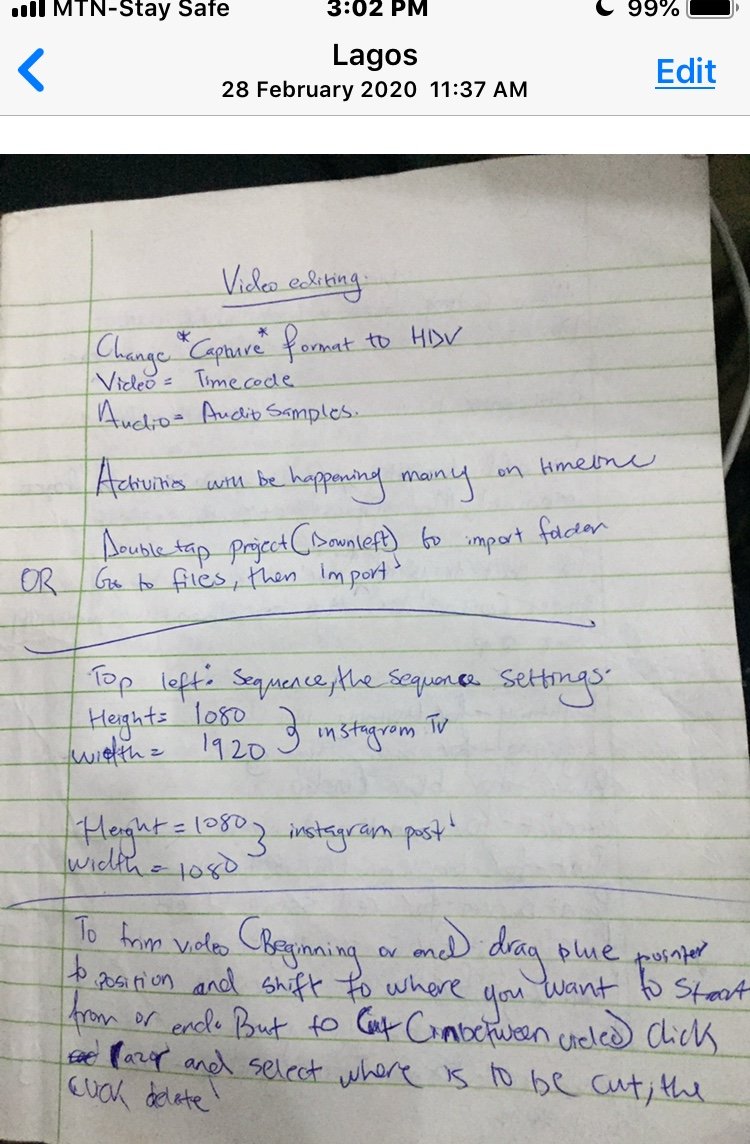 MTN-Stay Safe 3:02 PM 99%
Lagos
28 February 2020 11:37 AM
Edit
Video editing.
Change *Capture* format to HDV
Video = Timecode
Audio = Audio Samples.
Activities will be happening mainy on timeline
Double tap project (Down left) to import folder
OR Go to files, then import
Top left: Sequence, the sequence settings.
Height = 1080
width = 1920 } instagram Tv
Height = 1080 } instagram post
width = 1080
To trim video (Beginning or end) drag blue pointer
to position and shift to where you want to start
from or end. But to Cut (inbetween video) click
razor and select where is to be cut, the
click delete